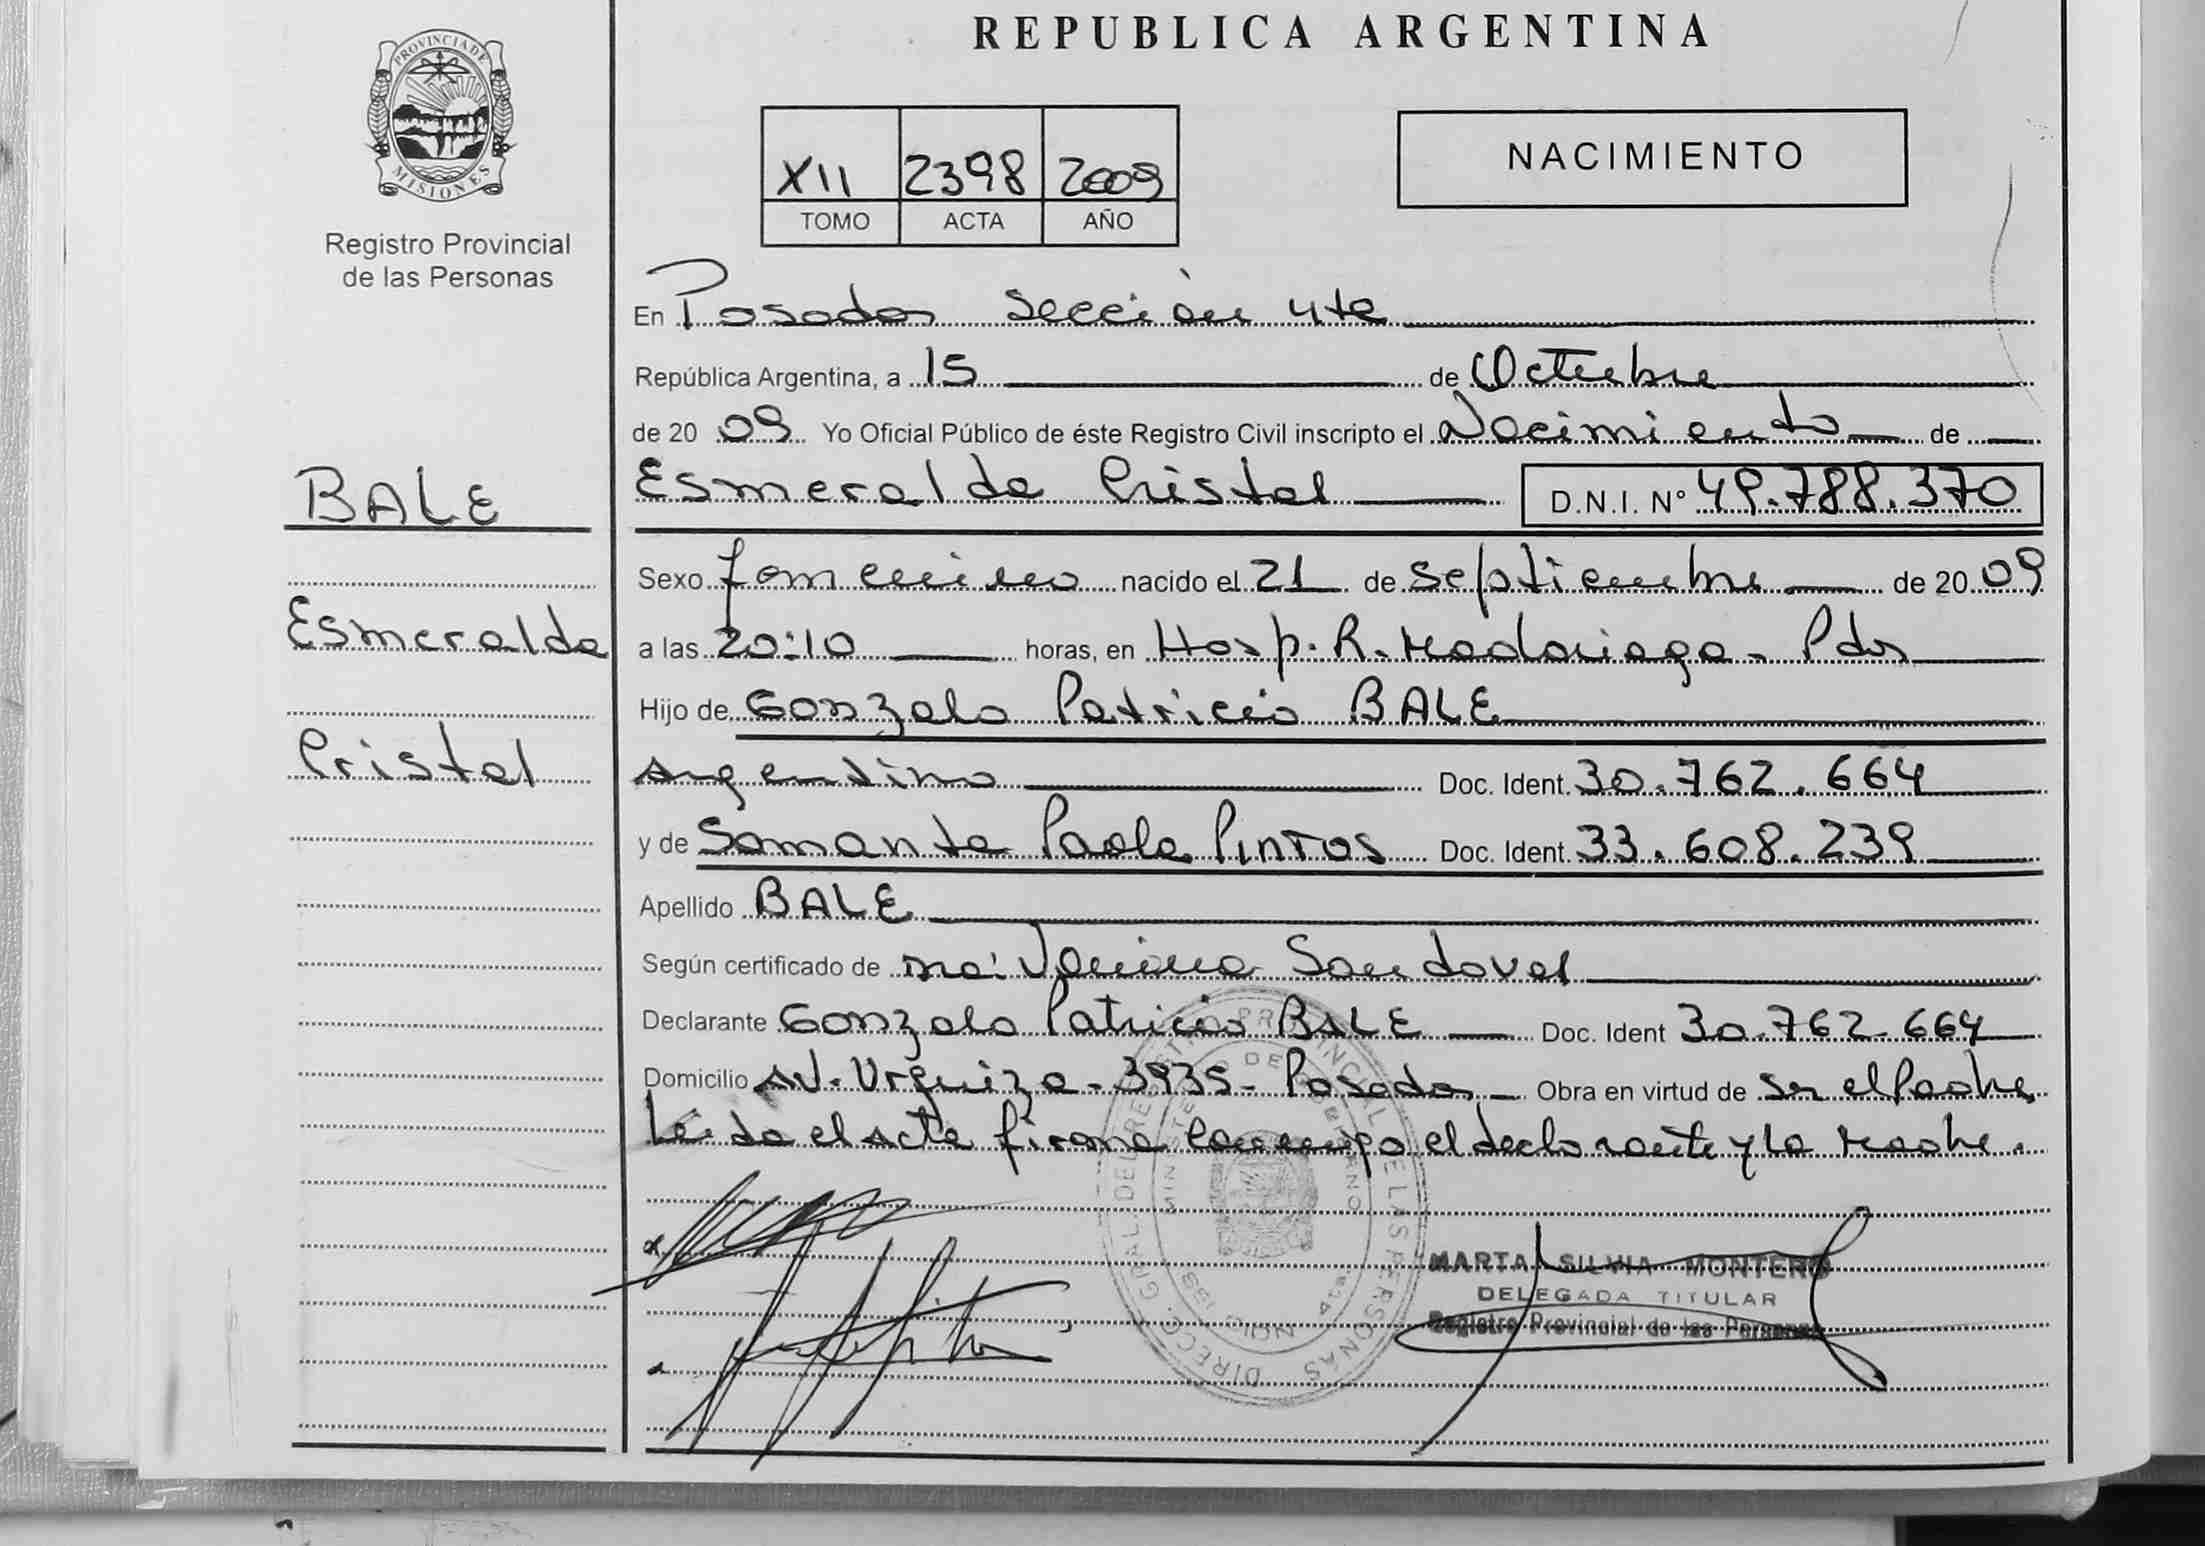 REPUBLICA ARGENTINA
PROVINCIA DE MISIONES
Registro Provincial
de las Personas
XII 2398 2009
TOMO ACTA AÑO
NACIMIENTO
En Posadas Sección 4ta
República Argentina, a 15 de Octubre
de 20 09 Yo Oficial Público de éste Registro Civil inscripto el Nacimiento de
Esmeralda Cristal D.N.I. Nº 49.788.370
BALE
Esmeralda
Cristal
Sexo femenino nacido el 21 de Septiembre de 20 09
a las 20:10 horas, en Hosp. R. Madariaga - Pdas
Hijo de Gonzalo Patricio BALE
Argentino Doc. Ident. 30.762.664
y de Samanta Paola PINTOS Doc. Ident. 33.608.239
Apellido BALE
Según certificado de Sandoval
Declarante Gonzalo Patricio BALE Doc. Ident 30.762.664
Domicilio Av. Urquiza - 3935 - Posadas Obra en virtud de ser el Padre
Leída el acta firma conmigo el declarante y la Madre.
MARTA SILVIA MONTERO
DELEGADA TITULAR
Registro Provincial de las Personas
DIRECC. GRAL. DEL REGISTRO PROVINCIAL DE LAS PERSONAS
MINISTERIO DE GOBIERNO